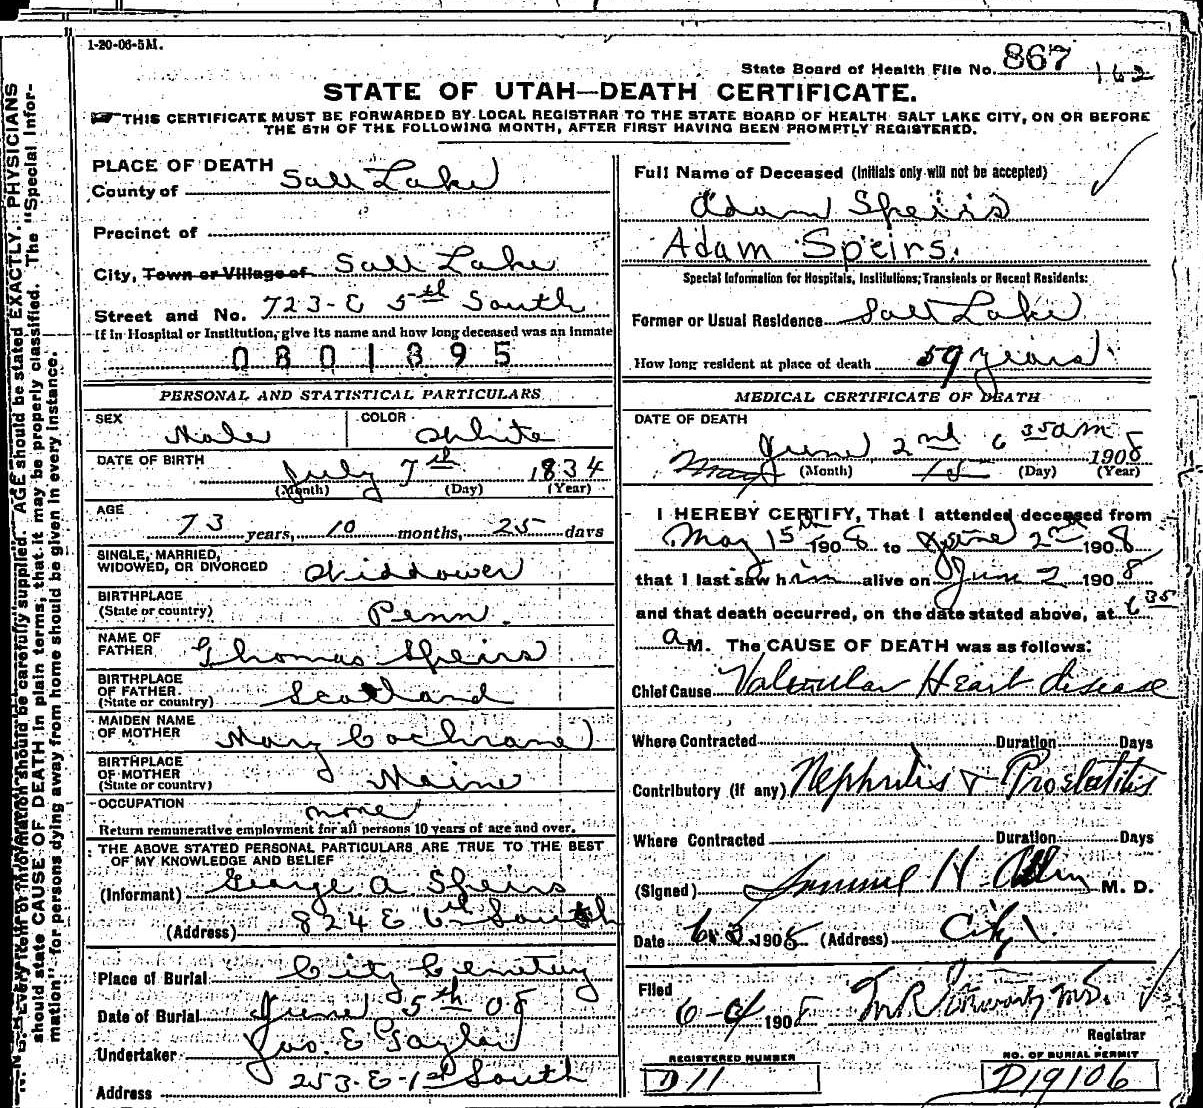 1-20-06-5M.
State Board of Health File No. 867 162
STATE OF UTAH—DEATH CERTIFICATE.
THIS CERTIFICATE MUST BE FORWARDED BY LOCAL REGISTRAR TO THE STATE BOARD OF HEALTH SALT LAKE CITY, ON OR BEFORE
THE 5TH OF THE FOLLOWING MONTH, AFTER FIRST HAVING BEEN PROMPTLY REGISTERED.
PLACE OF DEATH
County of Salt Lake
Precinct of
City, Town or Village of Salt Lake
Street and No. 723-E 5th South
If in Hospital or Institution, give its name and how long deceased was an inmate
0801895
PERSONAL AND STATISTICAL PARTICULARS
SEX Male COLOR White
DATE OF BIRTH
July 7th 1834
(Month) (Day) (Year)
AGE
73 years, 10 months, 25 days
SINGLE, MARRIED,
WIDOWED, OR DIVORCED Widower
BIRTHPLACE
(State or country) Penn.
NAME OF
FATHER Thomas Speirs
BIRTHPLACE
OF FATHER.
(State or country) Scotland
MAIDEN NAME
OF MOTHER Mary Cochrane
BIRTHPLACE
OF MOTHER
(State or country) Maine
OCCUPATION none
Return remunerative employment for all persons 10 years of age and over.
THE ABOVE STATED PERSONAL PARTICULARS ARE TRUE TO THE BEST
OF MY KNOWLEDGE AND BELIEF
(Informant) George A Speirs
(Address) 824 E 6th South
Place of Burial City Cemetery
Date of Burial June 5th 08
Undertaker Jos. E Taylor
Address 253-E-1st South
Full Name of Deceased (Initials only will not be accepted)
Adam Speirs
Adam Speirs.
Special Information for Hospitals, Institutions, Transients or Recent Residents:
Former or Usual Residence Salt Lake
How long resident at place of death 59 years
MEDICAL CERTIFICATE OF DEATH
DATE OF DEATH
June 2nd 6 35 am
May 15 1908
(Month) (Day) (Year)
I HEREBY CERTIFY, That I attended deceased from
May 15th 1908 to June 2nd 1908
that I last saw him alive on June 2 1908
and that death occurred, on the date stated above, at 6 35
a M. The CAUSE OF DEATH was as follows:
Chief Cause Valvular Heart disease
Where Contracted Duration Days
Contributory (if any) Nephritis & Prostatitis
Where Contracted Duration Days
(Signed) Samuel H. Allen M. D.
Date 6. 3. 1908 (Address) City
Filed
6-4 1908
Registrar
REGISTERED NUMBER
D11
NO. OF BURIAL PERMIT
D19106
should state CAUSE OF DEATH in plain terms, that it may be properly classified. The "Special Infor-
mation" for persons dying away from home should be given in every instance.